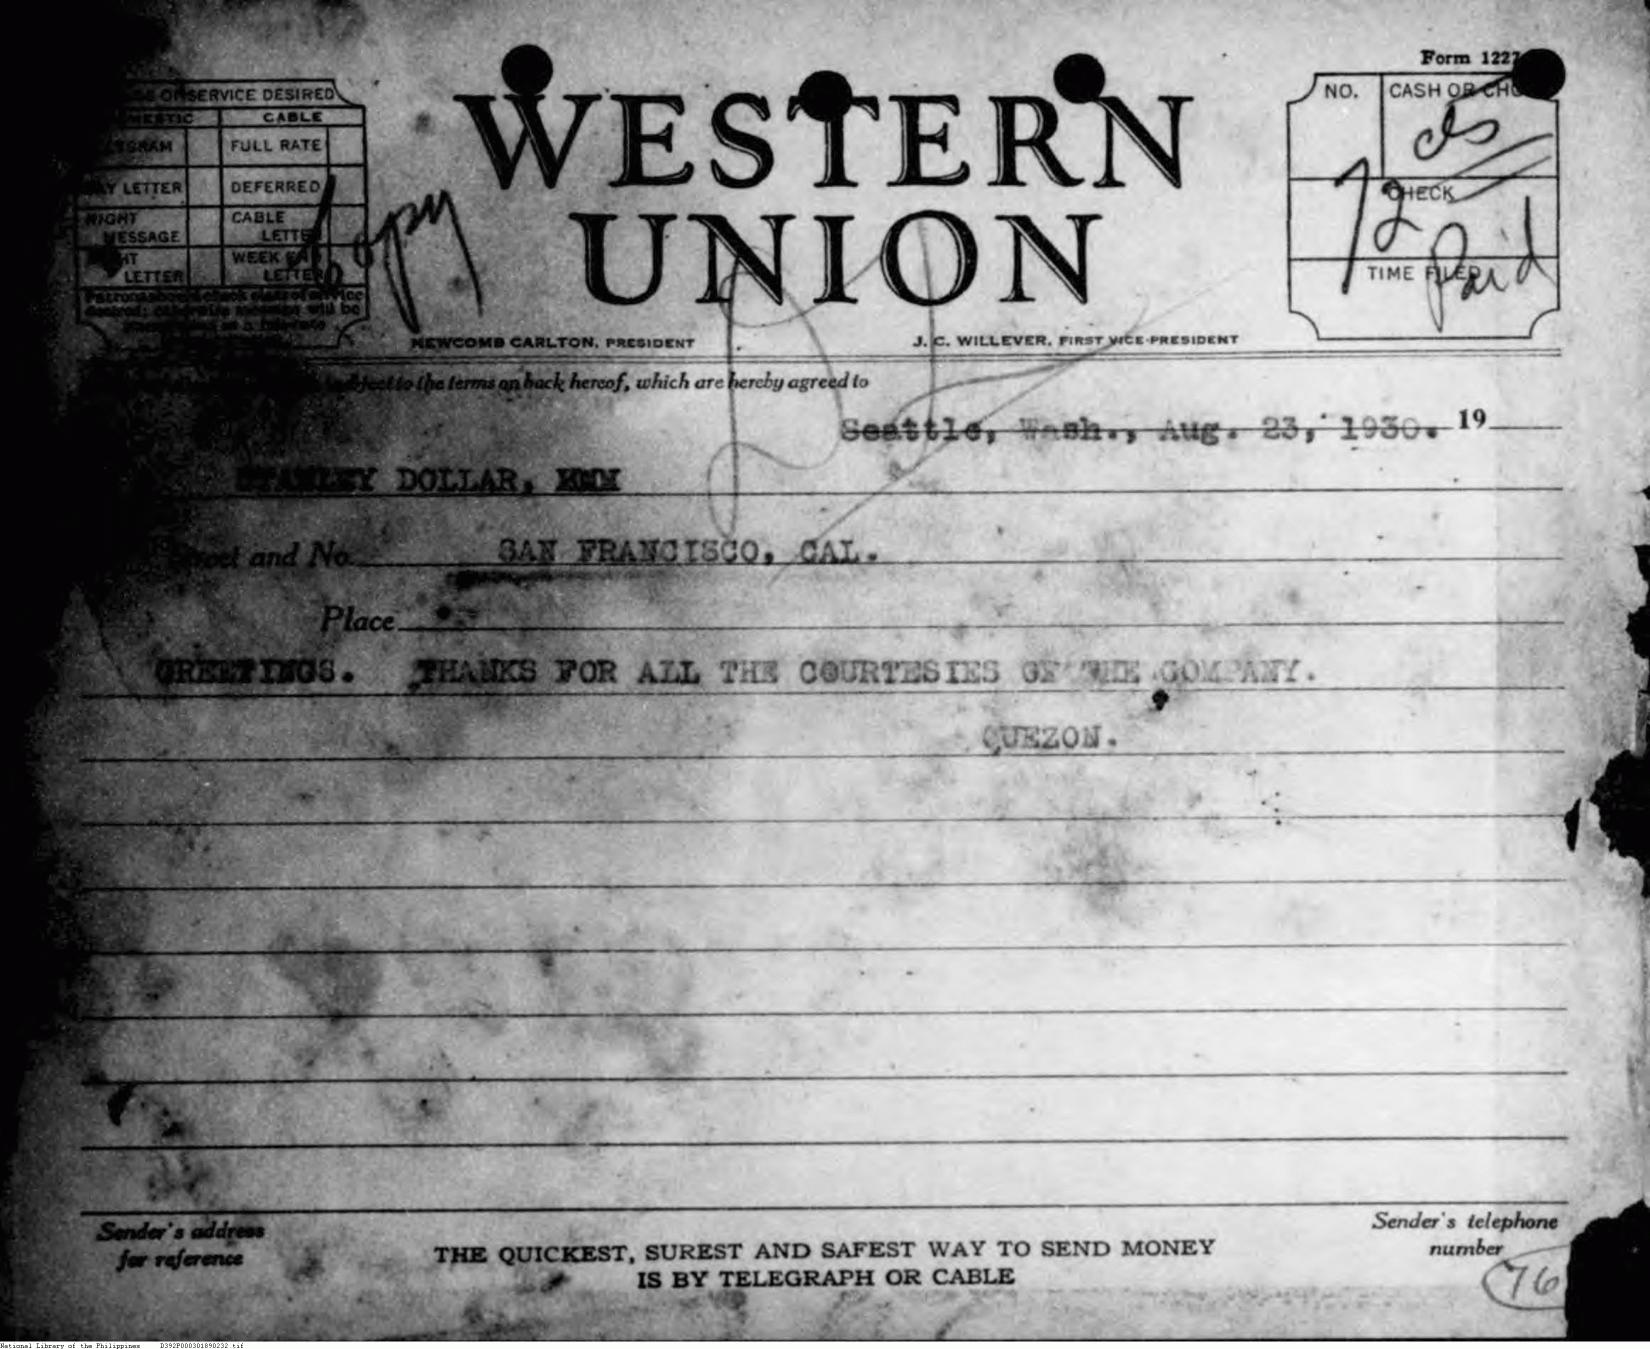 Form 1227
WESTERN
UNION
SERVICE DESIRED
CABLE
FULL RATE
LETTER
DEFERRED
NIGHT
MESSAGE
CABLE
LETTER
LETTER
WEEK END
LETTER
Copy
NO.
CASH OR CHG
CHECK
12
Paid
TIME FILED
NEWCOMB CARLTON, PRESIDENT
J. C. WILLEVER, FIRST VICE-PRESIDENT
subject to the terms on back hereof, which are hereby agreed to
Seattle, Wash., Aug. 23, 1930. 19
STANLEY DOLLAR,
Street and No. SAN FRANCISCO, CAL.
Place
GREETINGS. THANKS FOR ALL THE COURTESIES OF THE COMPANY.
QUEZON.
Sender's address
for reference
THE QUICKEST, SUREST AND SAFEST WAY TO SEND MONEY
IS BY TELEGRAPH OR CABLE
Sender's telephone
number
76
National Library of the Philippines D392P000301890232.tif